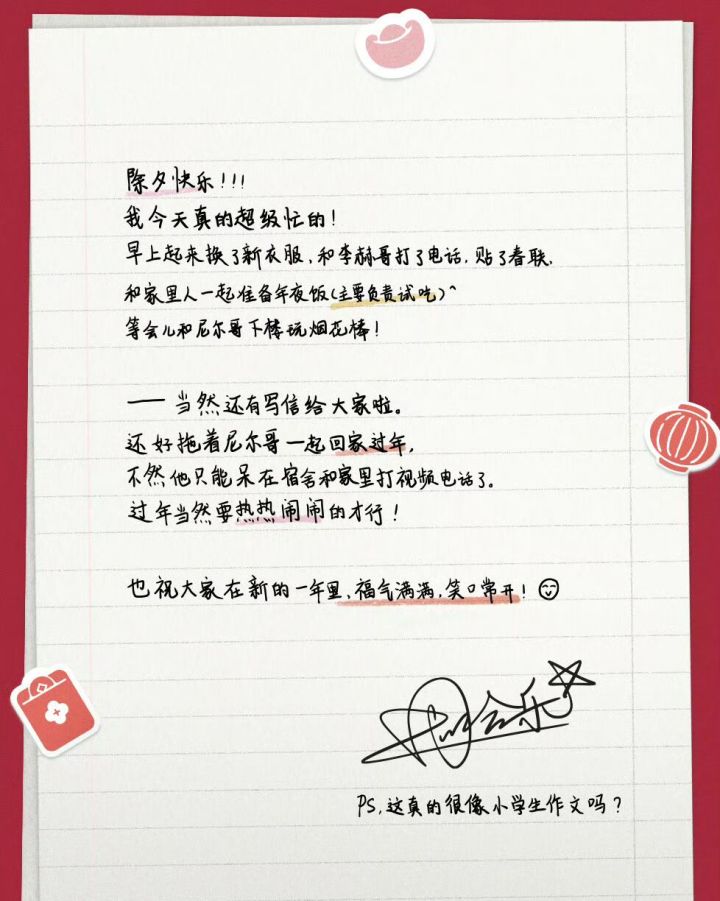 除夕快乐!!!
我今天真的超级忙的!
早上起来换了新衣服,和李赫哥打了电话,贴了春联,
和家里人一起准备年夜饭(主要负责试吃)^
等会儿和尼尔哥下楼玩烟花棒!
一 当然还有写信给大家啦。
还好拖着尼尔哥一起回家过年,
不然他只能呆在宿舍和家里打视频电话了。
过年当然要热热闹闹的才行!
也祝大家在新的一年里,福气满满,笑口常开!
PS,这真的很像小学生作文吗?